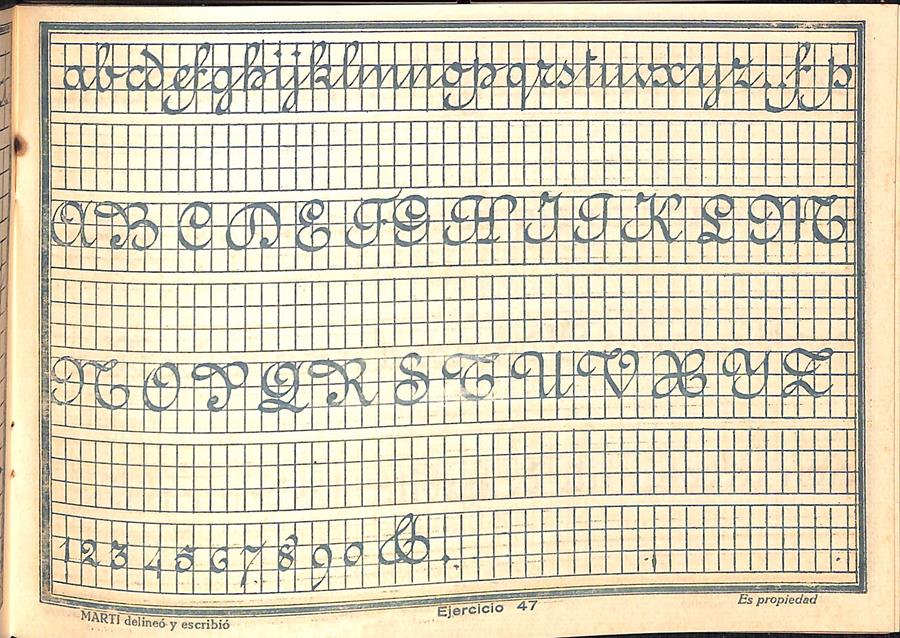 abcdefghijklmnopqrstuvxyz..fp
A B C D E F G H I J K L M
N O P Q R S T U V X Y Z
1 2 3 4 5 6 7 8 9 0 &.
MARTI delineó y escribió Ejercicio 47 Es propiedad